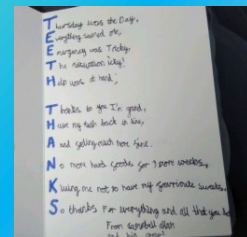 Thursday was the Day,
Everything seemed ok,
Emergency was Tricky,
The situation icky!
Help was at hand;
Thanks to you I'm good,
Have my teeth back in line,
And
No more hard foods for 2 more weeks,
Killing me not to have my favourite sweets,
So thanks for everything and all that you do
From
and his